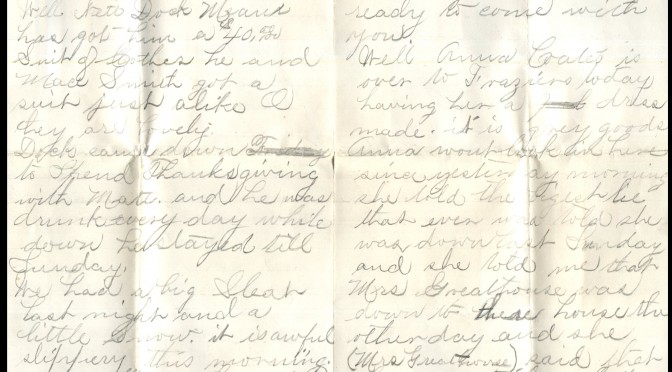 Well Nate Dock Moans
has got him a $40.00
Suit of Clothes he and
Mac Smith got a
suit just alike O
they are lovely.
Dock came down Friday
to Spend Thanksgiving
with Matt. and he was
drunk every day while
down he stayed till
Sunday
We had a big Sleat
last night and a
little snow. it is awful
slippery this morning.
ready to come with
you
Well Anna Coates is
over to Fraziers today
having her a dress
made. it is grey goods
Anna wont look in here
since yesterday morning
she told the bigest lie
that ever was told she
was down last Sunday
and she told me that
Mrs Greathouse was
down to there house the
other day and she
(Mrs Greathouse) said that